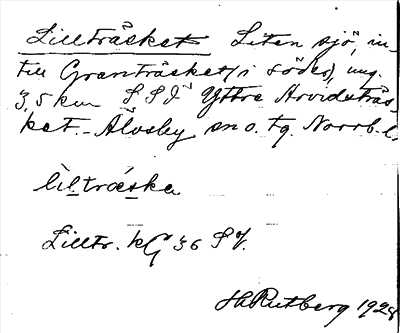 Lillträsket Liten sjö, in-
till Granträsket (i söder), ung.
3,5 km SSV Yttre Arvidsträs-
ket. - Älvsby sn o. tg. Norrb. l.
lìltræska
Lilltr. kG 36 SV.
H. Rutberg 1928